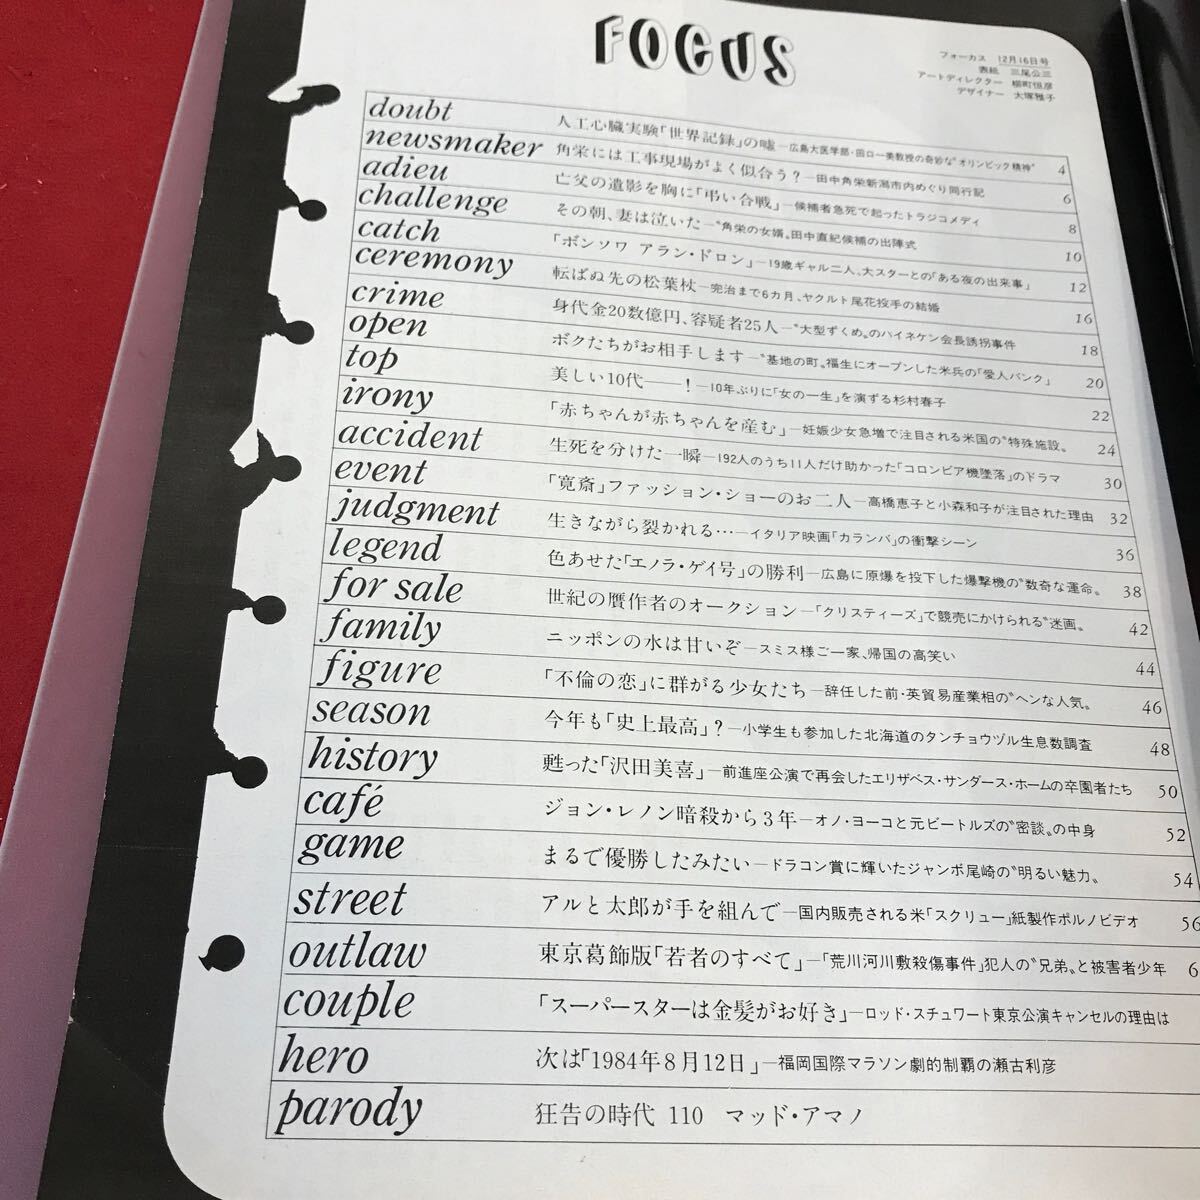 FOCUS
フォーカス 12月16日号
表紙 三尾公三
アートディレクター 柳町恒彦
デザイナー 大塚雅子
doubt 人工心臓実験「世界記録」の嘘―広島大医学部・田口一美教授の奇妙な〝オリンピック精神〟 4
newsmaker 角栄には工事現場がよく似合う?―田中角栄新潟市内めぐり同行記 6
adieu 亡父の遺影を胸に「弔い合戦」―候補者急死で起ったトラジコメディ 8
challenge その朝、妻は泣いた―〝角栄の女婿〟田中直紀候補の出陣式 10
catch 「ボンソワ アラン・ドロン」―19歳ギャル二人、大スターとの「ある夜の出来事」 12
ceremony 転ばぬ先の松葉杖―完治まで6カ月、ヤクルト尾花投手の結婚 16
crime 身代金20数億円、容疑者25人―〝大型ずくめ〟のハイネケン会長誘拐事件 18
open ボクたちがお相手します―〝基地の町〟福生にオープンした米兵の「愛人バンク」 20
top 美しい10代――!―10年ぶりに「女の一生」を演ずる杉村春子 22
irony 「赤ちゃんが赤ちゃんを産む」―妊娠少女急増で注目される米国の〝特殊施設〟 24
accident 生死を分けた一瞬―192人のうち11人だけ助かった「コロンビア機墜落」のドラマ 30
event 「寛斎」ファッション・ショーのお二人―高橋恵子と小森和子が注目された理由 32
judgment 生きながら裂かれる…―イタリア映画「カランバ」の衝撃シーン 36
legend 色あせた「エノラ・ゲイ号」の勝利―広島に原爆を投下した爆撃機の〝数奇な運命〟 38
for sale 世紀の贋作者のオークション―「クリスティーズ」で競売にかけられる〝迷画〟 42
family ニッポンの水は甘いぞ―スミス様ご一家、帰国の高笑い 44
figure 「不倫の恋」に群がる少女たち―辞任した前・英貿易産業相の〝ヘンな人気〟 46
season 今年も「史上最高」?―小学生も参加した北海道のタンチョウヅル生息数調査 48
history 甦った「沢田美喜」―前進座公演で再会したエリザベス・サンダース・ホームの卒園者たち 50
café ジョン・レノン暗殺から3年―オノ・ヨーコと元ビートルズの〝密談〟の中身 52
game まるで優勝したみたい―ドラコン賞に輝いたジャンボ尾崎の〝明るい魅力〟 54
street アルと太郎が手を組んで―国内販売される米「スクリュー」紙製作ポルノビデオ 56
outlaw 東京葛飾版「若者のすべて」―「荒川河川敷殺傷事件」犯人の〝兄弟〟と被害者少年 6
couple 「スーパースターは金髪がお好き」―ロッド・スチュワート東京公演キャンセルの理由は
hero 次は「1984年8月12日」―福岡国際マラソン劇的制覇の瀬古利彦
parody 狂告の時代 110 マッド・アマノ